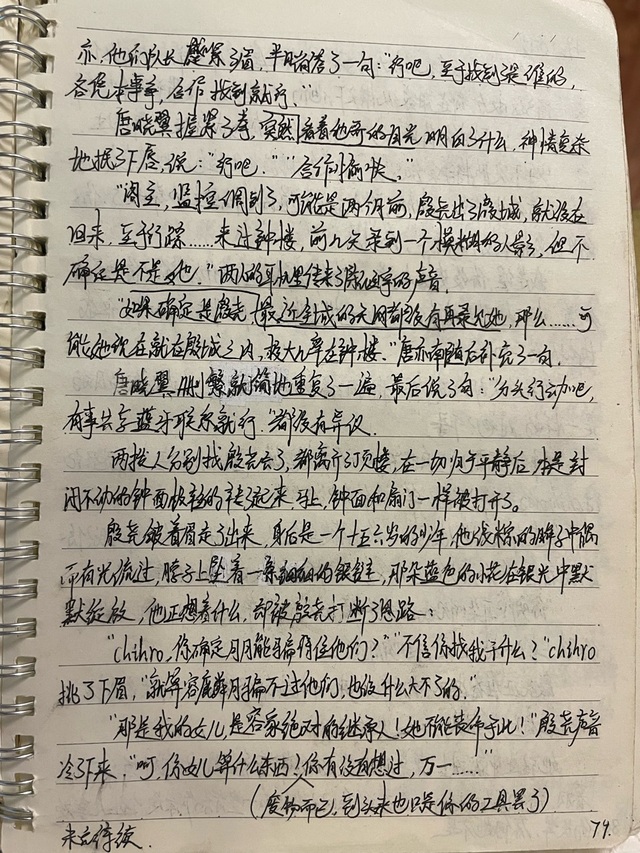 亦，他们队长蹙紧了眉，半晌省答了一句："行吧，至于找到是谁的，
各凭本事率，合作找到就行。"
唐晓翼握紧了拳，突然看着他哥的目光明白了什么，神情复杂
地抿了下唇，说："行吧。""合作愉快。"
"阁主，监控调到了，可能是两个月前，殷尧出了殷城，就没在
回来，至于行踪……来过钟楼，前几天录到一个模糊的人影，但不
确定是不是她。"两人的耳机里传来了的声音。
"如果确定是殷尧，最近全城的天网都没有再录见她，那么……可
能她现在就在殷城之内，极大几率在钟楼。"唐亦南随后补充了一句。
唐晓翼删繁就简地重复了一遍，最后说了句："分头行动吧，
有事共享蓝牙联系就行。"都没有异议。
两拨人分别找殷尧去了，都离开了顶楼，在一切归于平静后，本是封
闭不动的钟面极轻的转了起来，马上，钟面和扇门一样被打开了。
殷尧皱着眉走了出来，身后是一个十五六岁的少年，他浅棕的眸子中偶
而有光流过，脖子上坠着一条细细的银链，那朵蓝色的小花在银光中默
默绽放，他正想着什么，却被殷尧打断了思路：
"chihro，你确定月月能瞒得住他们？""不信你找我干什么？"chihro
挑了下眉，"就算容鹿月骗不过他们，也没什么大不了的。"
"那是我的女儿，是容家绝对的继承人！她不能丧命于此！"殷尧声音
冷了下来。"呵，你女儿算什么东西？你有没有想过，万一……"
（废物而已，到头来也只是你的工具罢了）
未完待续。
79.